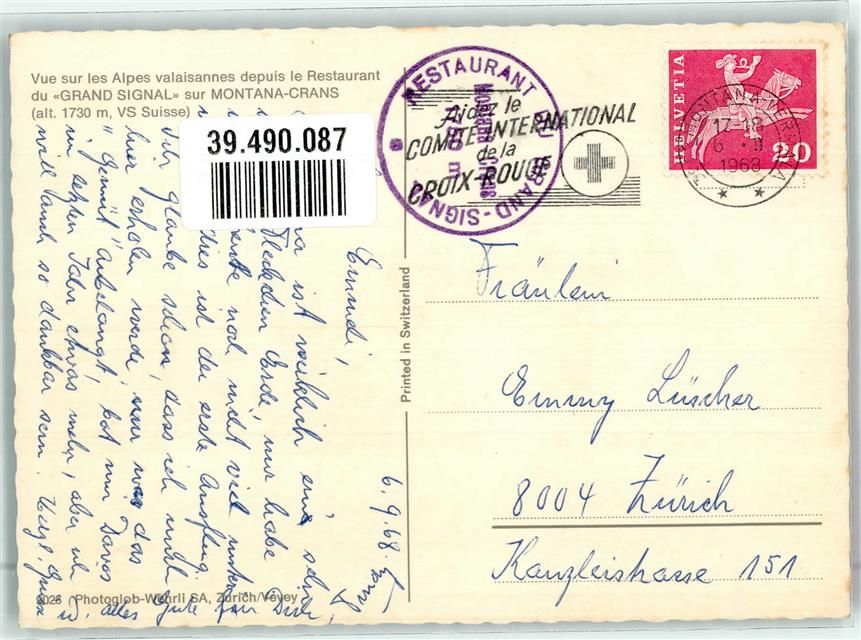 Vue sur les Alpes valaisannes depuis le Restaurant
du «GRAND SIGNAL» sur MONTANA-CRANS
(alt. 1730 m, VS Suisse)
39.490.087
RESTAURANT GRAND-SIGNAL
Montana
Aidez le
COMITÉ INTERNATIONAL
de la
CROIX-ROUGE
HELVETIA
20
MONTANA-VERMALA
17-18
6 . 9
1968
Printed in Switzerland
Fräulein
Emmy Lüscher
8004 Zürich
Kanzleistrasse 151
6.9.68.
Emmeli,
ist wirklich ein schö
Fleckchen Erde, nur habe
noch nicht viel
dies ist der erste Ausflug.
Ich glaube schon, dass ich mich
hier erholen werde, nur was das
"Gemüt" anbelangt, bot mir Davos
im letzten Jahr etwas mehr, aber ich
will auch so dankbar sein. Herzl. Grüsse
u. alles Gute für Dich,
2026 Photoglob-Wehrli SA, Zürich/Vevey